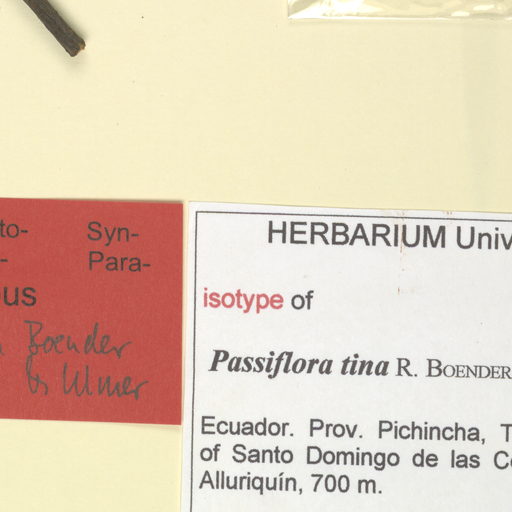 to- Syn-
- Para-
us
Boender
& Ulmer
HERBARIUM Univ
isotype of
Passiflora tina R. BOENDER
Ecuador. Prov. Pichincha, T
of Santo Domingo de las Co
Alluriquín, 700 m.